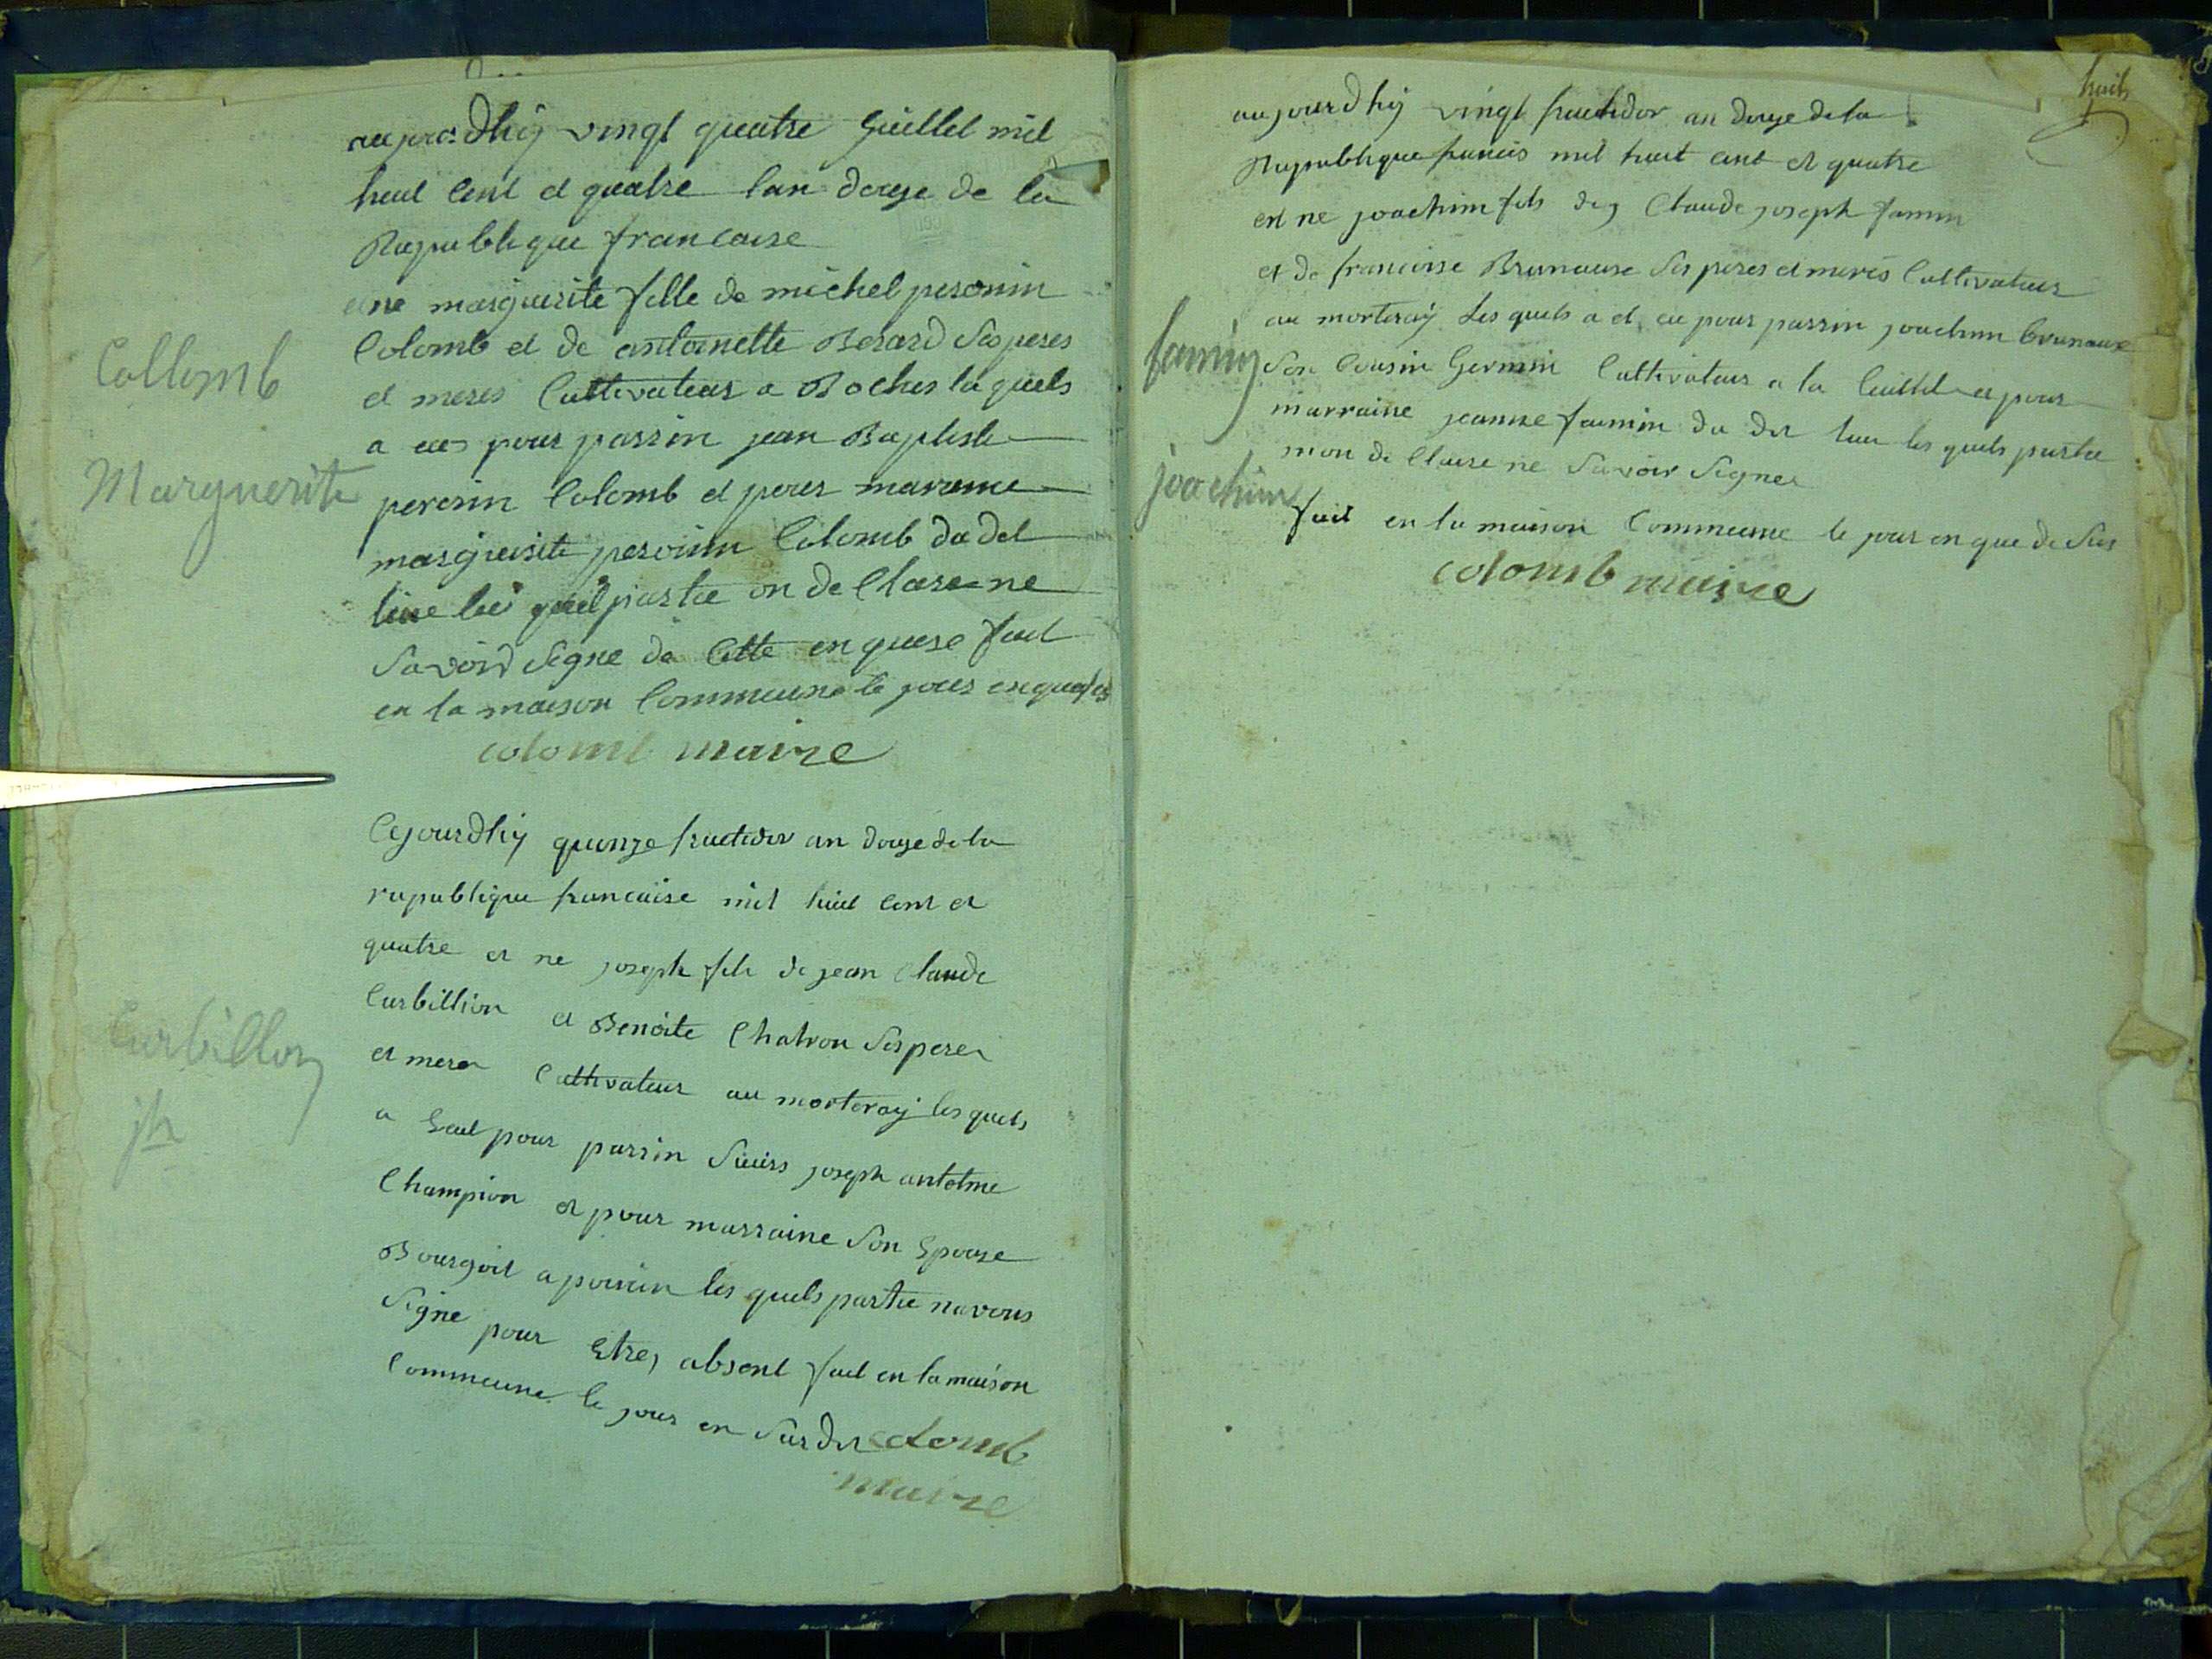 aujordhÿ vingt quatre Juillet mil
huit Cent et quatre lan douze de la
Rupublique francaise
est ne marguerite fille de michel peronin
Colomb et de antoinette Berard Ses peres
et meres Cultivateur a Boches la quels
a eu pour parrin jean Baptiste
peronin Colomb et pour maraine
marguerite peronin Colomb du dit
lieu les quel partie on de Clare ne
Savoir Signe de Cette en quese fait
en la maison Commeune le jour en que
colomb maire
Collomb
Marguerite
Cejourdhÿ quinze fructidor an douze de la
rupublique francaise mil huit cent et
quatre et ne joseph fils de jean Claude
Curbillion et Benoite Chatron Ses peres
et meres Cultivateur au morteray les quels
a Eut pour parrin Sieurs joseph antelme
Champion et pour marraine Son Epouse
Bourgoit a peurin les quels partie navous
Signe pour Etre absent fait en la maison
Commeune le jour en Sus dit colomb
maire
Curbillon
jh
huit
aujourdhÿ vingt fructidor an douze de la
Rupublique funcis mil huit cent et quatre
est ne joachim fils de Claude joseph famin
et de francoise Brunause Ses peres et meres Cultivateur
au morteray Les quels a et eu pour parrin joachim brunause
Son Cousin Germin Cultivateur a la et pour
marraine jeanne faumin du dit lieu les quels partie
mon de Clare ne Savoir Signer
fait en la maison Commeune le jour en que de Sus
colomb maire
famin
joachim